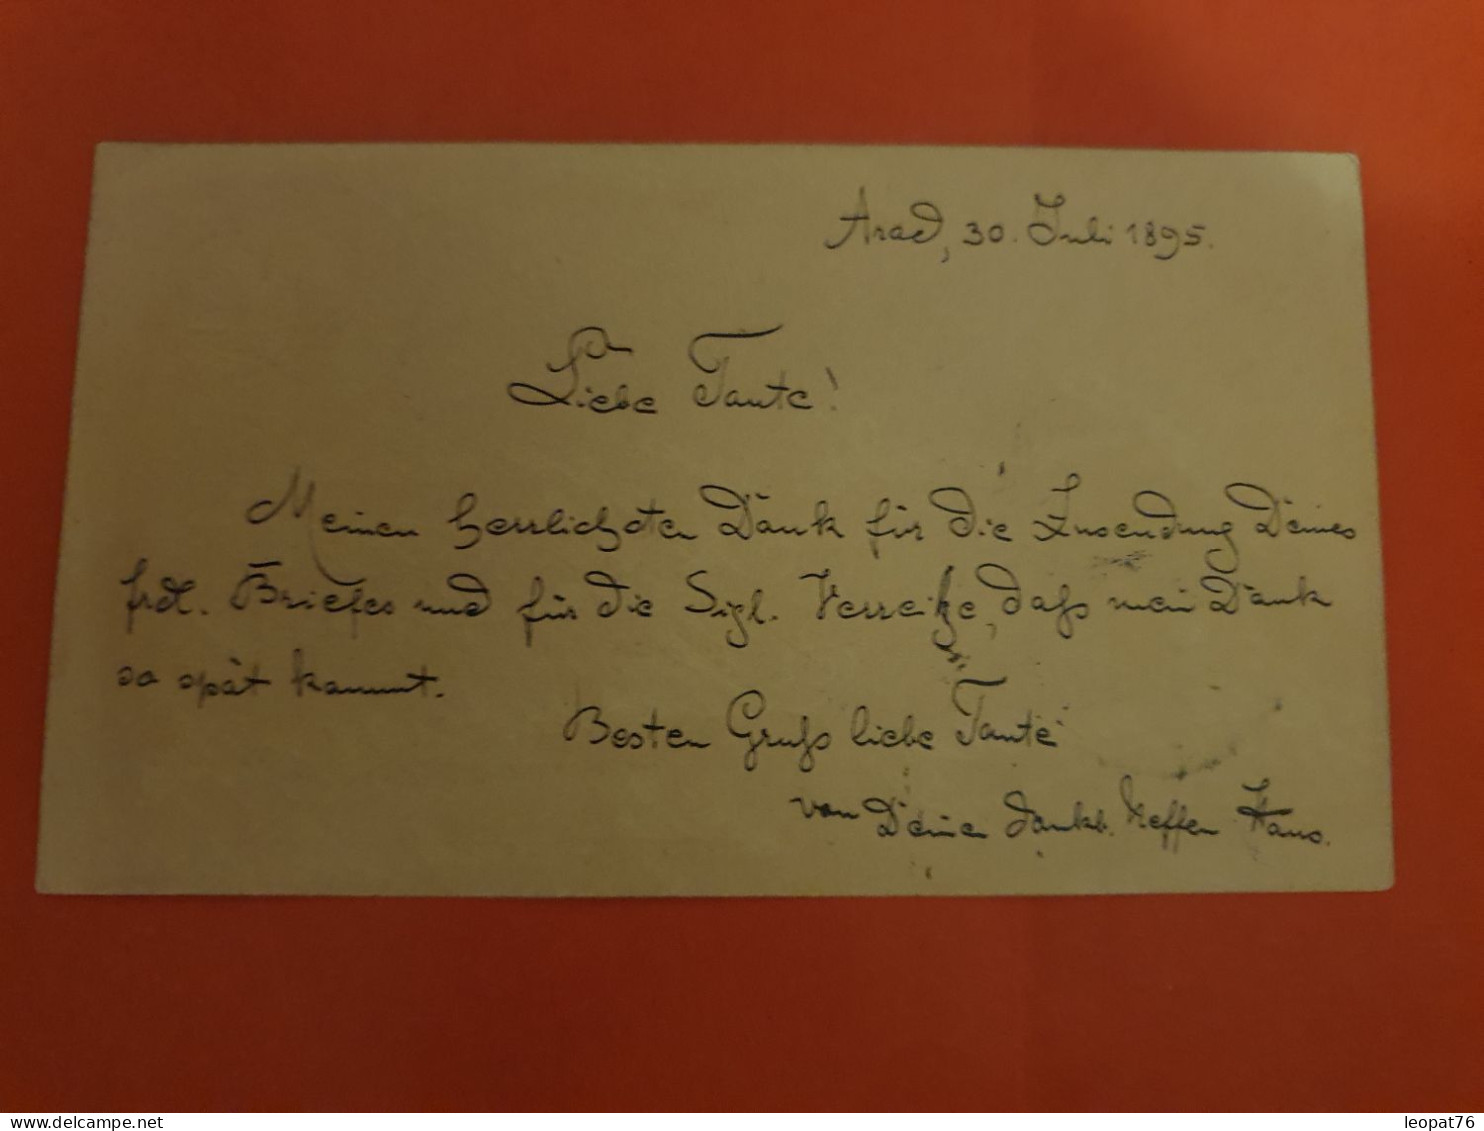 Arad, 30. Juli 1895.
Liebe Tante!
Meinen herzlichsten Dank für die Zusendung Deines
frdl. Briefes und für die Sigl. Verzeihe, daß mein Dank
so spät kommt.
Besten Gruß liebe Tante
von Deinen dankb. Neffen Hans.
leopat76